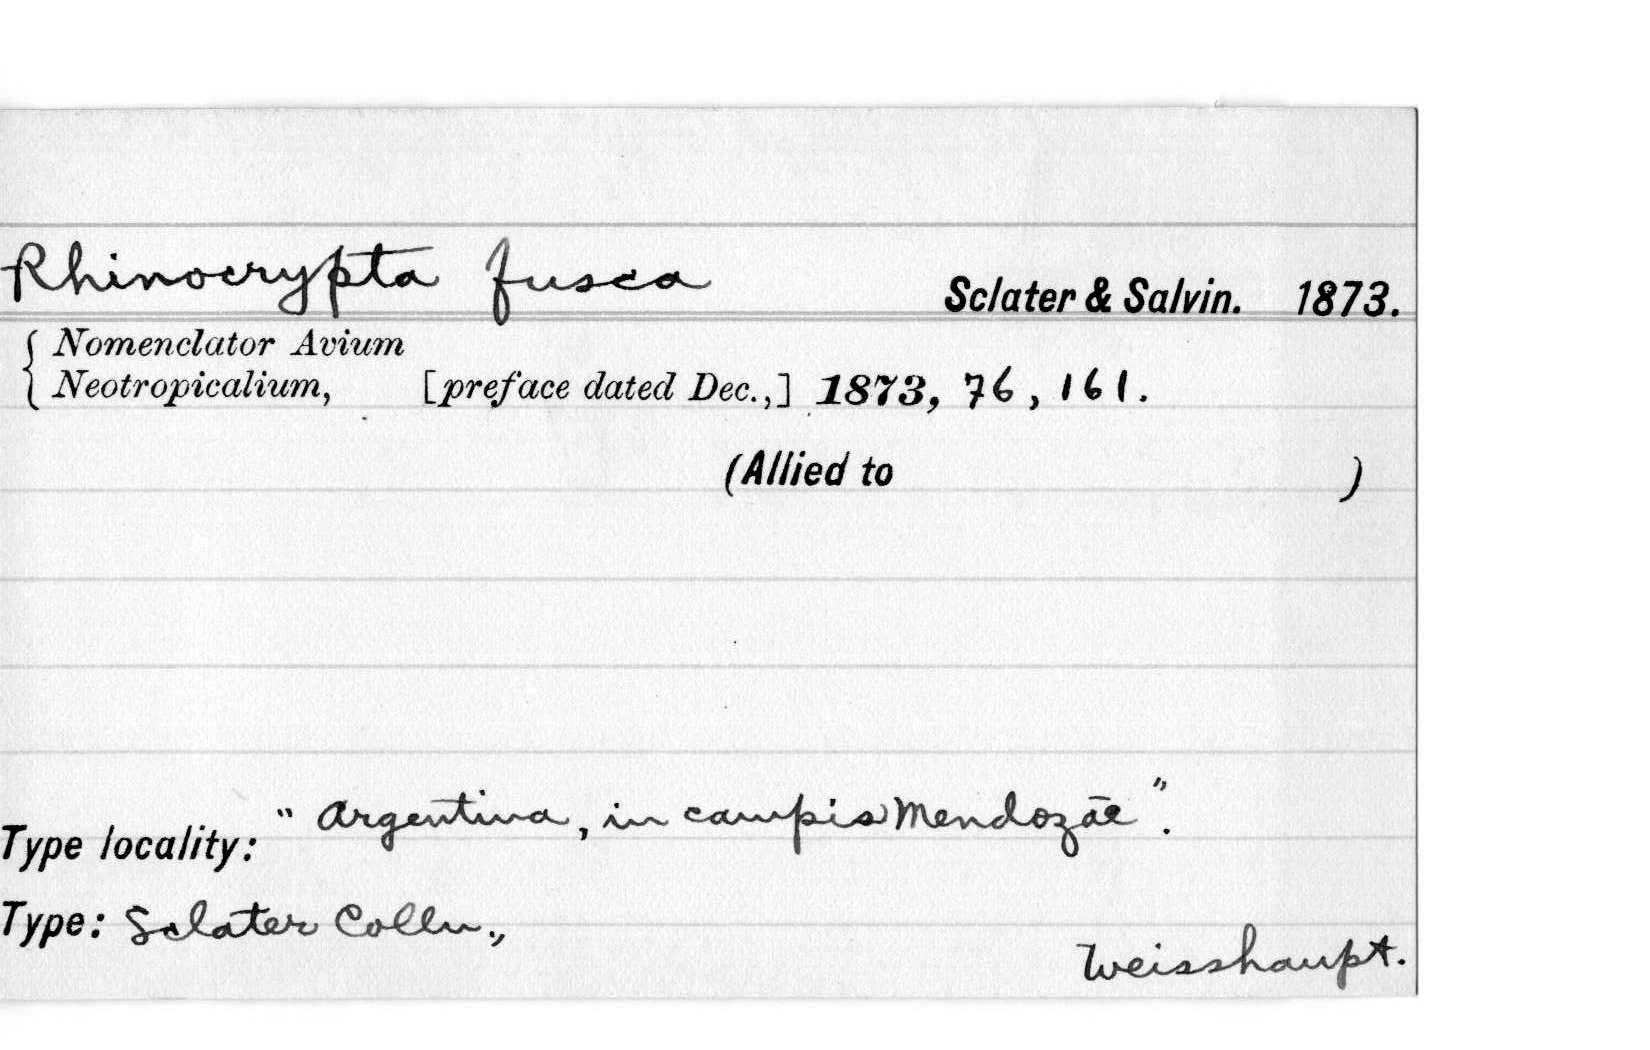 Rhinocrypta fusca Sclater & Salvin. 1873.
{ Nomenclator Avium
Neotropicalium, [preface dated Dec.,] 1873, 76, 161.
(Allied to )
Type locality: "Argentina, in campis Mendozāe".
Type: Sclater Colln.,
Weisshaupt.